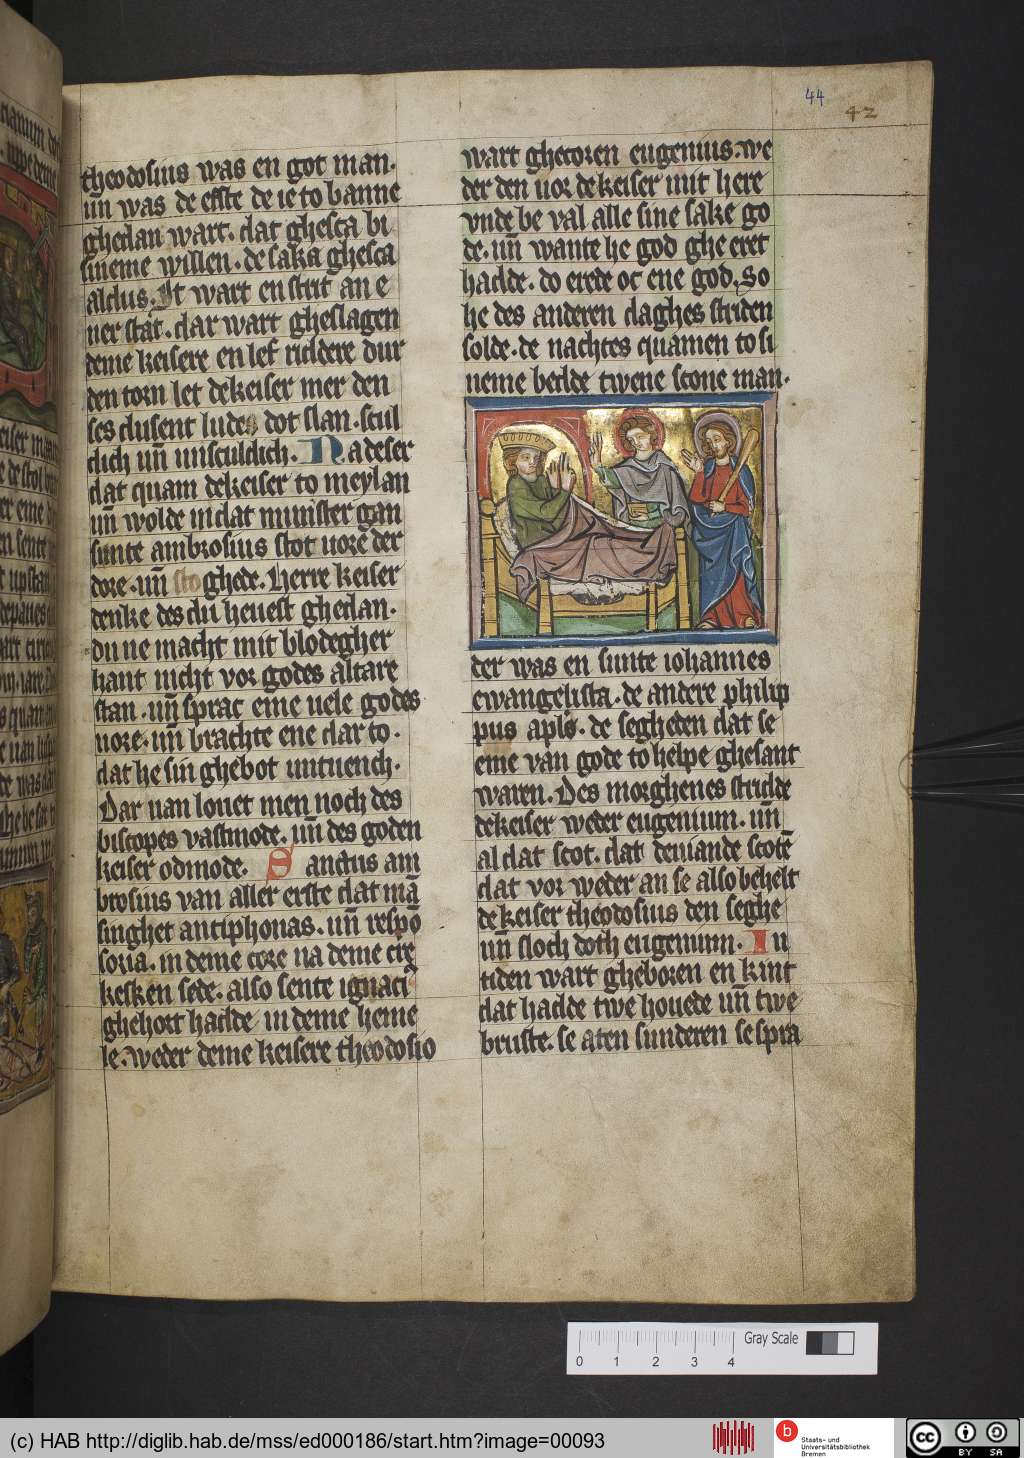 44
42
theodosius was en got man.
uñ was de erste de ie to banne
ghedan wart. dat ghesca bi
sineme willen. de saka ghesca
aldus. It wart en strit an e
ner stat. dar wart gheslagen
deme keisere en lef riddere dur
den torn let dekeiser mer den
ses dusent lude dot slan. scul
dich uñ unsculdich. Na deser
dat quam dekeiser to meylan
uñ wolde in dat munster gan
sunte ambrosius stot uore der
dore. uñ ghede. Herre keiser
denke des du heuest ghedan.
du ne macht mit blodegher
hant nicht vor godes altare
stan. uñ sprac eme uele godes
uore. uñ brachte ene dar to.
dat he sin ghebot untuench.
Dar uan louet men noch des
biscopes vastmode. uñ des goden
keiser odmode. Sanctus am
brosius van aller erste dat mā
singhet antiphonas. uñ respō
soria. in deme core na deme crē
kesken sede. also sente ignaci
ghehort hadde in deme heme
le. weder deme keisere theodosio
wart ghecoren eugenius. we
der den uor de keiser mit here
vnde be val alle sine sake go
de. uñ wante he god ghe eret
hadde. do erede oc ene god. So
he des anderen daghes striden
solde. de nachtes quamen to si
neme bedde twene scone man.
der was en sunte iohannes
ewangelista. de andere philip
pus apls. de segheden dat se
eme van gode to helpe ghesant
waren. Des morghenes stridde
dekeiser weder eugenium. uñ
al dat scot. dat deuiande scotē
dat vor weder an se also behelt
de keiser theodosius den seghe
uñ sloch doth eugenium. In
tiden wart gheboren en kint
dat hadde twe houede uñ twe
bruste. se aten sunderen se spra
Gray Scale
0 1 2 3 4
(c) HAB http://diglib.hab.de/mss/ed000186/start.htm?image=00093
b
Staats- und
Universitätsbibliothek
Bremen
cc
BY SA